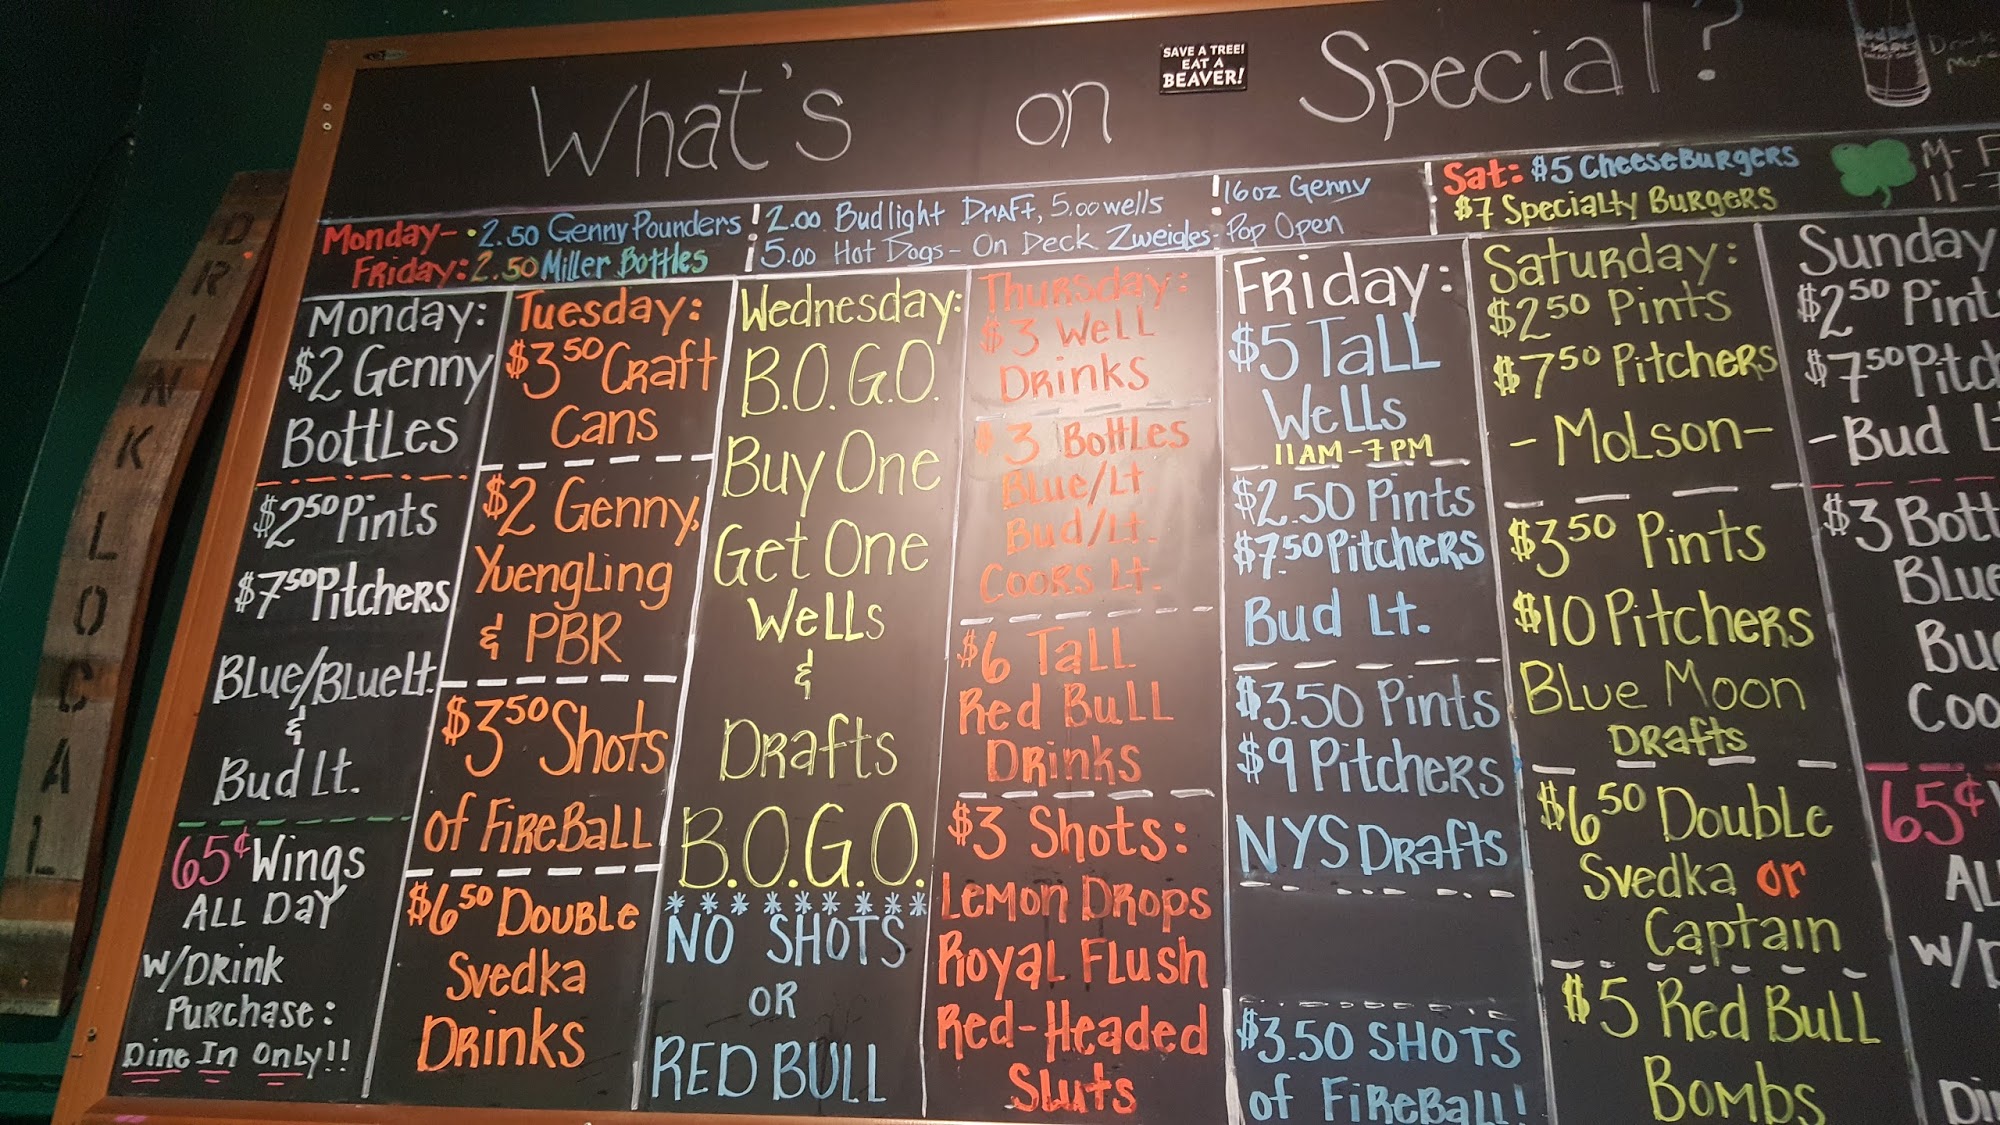 What's on Special?
SAVE A TREE!
EAT A
BEAVER!
DRINK LOCAL
Monday- • 2.50 Genny Pounders
Friday: 2.50 Miller Bottles
2.00 Budlight Draft, 5.00 wells
5.00 Hot Dogs - On Deck Zweigles -
16oz Genny
Pop Open
Sat: $5 CheeseBurgers
$7 Specialty Burgers
Monday:
$2 Genny
Bottles
$2.50 Pints
$7.50 Pitchers
Blue/Blue Lt.
&
Bud Lt.
65¢ Wings
ALL DAY
w/Drink
Purchase:
Dine In Only!!
Tuesday:
$3.50 Craft
Cans
$2 Genny,
Yuengling
& PBR
$3.50 Shots
of FireBall
$6.50 Double
Svedka
Drinks
Wednesday:
B.O.G.O.
Buy One
Get One
Wells
&
Drafts
B.O.G.O.
*********
NO SHOTS
OR
RED BULL
Thursday:
$3 Well
Drinks
$3 Bottles
Blue/Lt.
Bud/Lt.
Coors Lt.
$6 Tall
Red Bull
Drinks
$3 Shots:
Lemon Drops
Royal Flush
Red-Headed
Sluts
Friday:
$5 Tall
Wells
11AM-7PM
$2.50 Pints
$7.50 Pitchers
Bud Lt.
$3.50 Pints
$9 Pitchers
NYS Drafts
$3.50 SHOTS
of FireBall!
Saturday:
$2.50 Pints
$7.50 Pitchers
- Molson -
$3.50 Pints
$10 Pitchers
Blue Moon
Drafts
$6.50 Double
Svedka or
Captain
$5 Red Bull
Bombs
Sunday
$2.50 Pint
$7.50 Pitc
- Bud L
$3 Bott
Blue
Bu
Coo
65¢
AL
w/D
Di